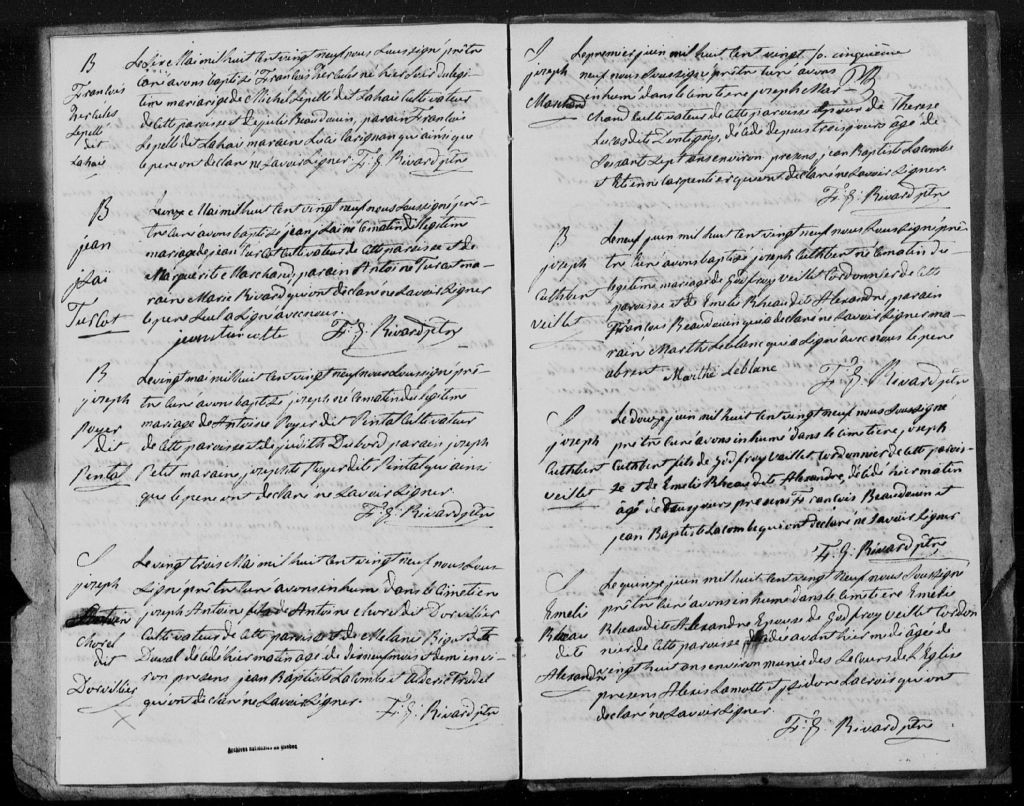 B
François
Hercules
Lepellé
dit
Lahaie
Le six Mai mil huit cent vingt neuf nous soussigné prêtre
curé avons baptisé François Hercules né hier soir du légi
time mariage de Michel Lepellé dit Lahaie cultivateur
de cette paroisse et de Beaudouin, parain François
Lepellé dit Lahaie maraine Luce Carignan qui ainsi que
le pere ont declaré ne savoir signer. Fr. S. Rivard ptre
B
jean
jsaï
Turcot
Le onze Mai mil huit cent vingt neuf nous soussigné prê-
tre curé avons baptisé jean jsaï né ce matin du légitime
mariage de jean Turcot cultivateur de cette paroisse et de
Marguerite Marchand, parain Antoine Turcot ma-
raine Marie Rivard qui ont declaré ne savoir signer
le pere seul a signé avec nous.
jean turcotte Fr. S. Rivard ptre
B
joseph
Poyer
dit
Pintal
Le vingt mai mil huit cent vingt neuf nous soussigné prê-
tre curé avons baptisé joseph né ce matin du légitime
mariage de Antoine Poyer dit Pintal cultivateur
de cette paroisse et de judith Dubord parain joseph
Petit maraine josephte Poyer dit Pintal qui ainsi
que le pere ont declaré ne savoir signer.
Fr. S. Rivard ptre
S
joseph
Antoine
Chorel
dit
Dorvillier
Le vingt trois Mai mil huit cent vingt neuf nous sous
signé prêtre curé avons inhumé dans le cimetière
joseph Antoine fils de Antoine Chorel dit Dorvillier
cultivateur de cette paroisse et de Melanie
Duval décédé hier matin agé de dix neuf mois et demi envi
ron presens jean Baptiste Lacombe et Alderic Trudel
qui ont declaré ne savoir signer.
Fr. S. Rivard ptre
Archives nationales du Québec
S
joseph
Marchand
Le premier juin mil huit cent vingt fo. cinquième
neuf nous soussigné prêtre curé avons
inhumé dans le cimetière joseph Mar-
chand cultivateur de cette paroisse epoux de Therese
Lucas dit Dontigny, décédé depuis trois jours âgé de
soixante sept ans environ presens jean Baptiste Lacombe
et Etienne Carpentier qui ont declaré ne savoir signer.
Fr. S. Rivard ptre
B
joseph
Cuthbert
veillet
Le neuf juin mil huit cent vingt neuf nous soussigné prê-
tre curé avons baptisé joseph Cuthbert né ce matin du
légitime mariage de Godfroy veillet cordonnier de cette
paroisse et de Emelie Rheau dite Alexandre, parain
François Beaudouin qui a declaré ne savoir signer ma-
raine Marthe Leblanc qui a signé avec nous le pere
absent. Marthe Leblanc Fr. S. Rivard ptre
S
joseph
Cuthbert
veillet
Le douze juin mil huit cent vingt neuf nous soussigné
prêtre curé avons inhumé dans le cimetière joseph
Cuthbert fils de Godfroy veillet, cordonnier de cette parois-
se et de Emelie Rheau dite Alexandre, décédé hier matin
âgé de jours presens François Beaudouin et
jean Baptiste Lacombe qui ont declaré ne savoir signer
Fr. S. Rivard ptre
S
Emelie
Rheau
dite
Alexandre
Le quinze juin mil huit cent vingt neuf nous soussigné
prêtre curé avons inhumé dans le cimetière Emelie
Rheau dite Alexandre Epouse de Godfroy veillet cordon
nier de cette paroisse décédée avant hier midi âgée de
vingt huit ans environ munie des secours de l'Eglise
presens Alexis Lamotte et jsidore Lacroix qui ont
declaré ne savoir signer.
Fr. S. Rivard ptre